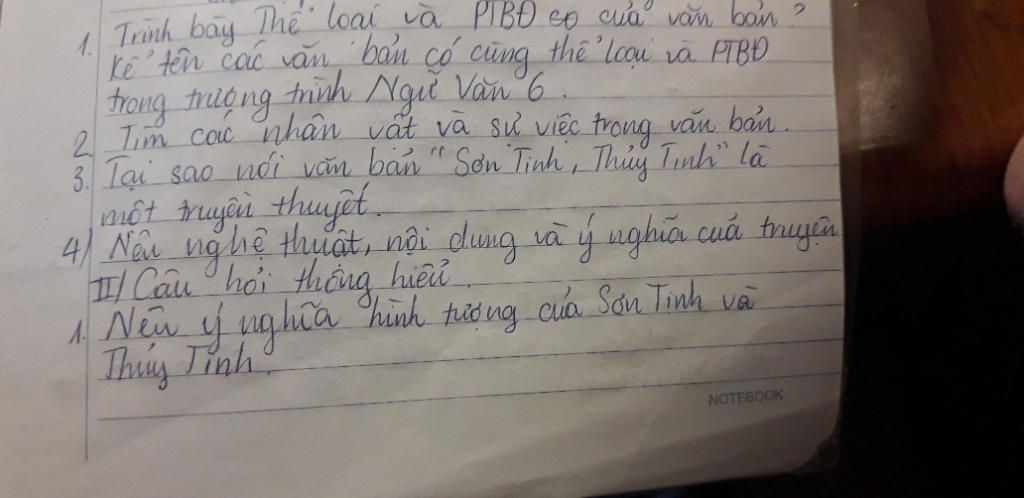 1. Trình bày Thể loại và PTBĐ của văn bản?
Kể tên các văn bản có cùng thể loại và PTBĐ
trong trương trình Ngữ Văn 6.
2 Tìm các nhân vật và sự việc trong văn bản.
3. Tại sao nói văn bản "Sơn Tinh, Thủy Tinh" là
một truyền thuyết.
4) Nêu nghệ thuật, nội dung và ý nghĩa của truyện
II) Câu hỏi thông hiểu.
1. Nêu ý nghĩa hình tượng của Sơn Tinh và
Thủy Tinh.
NOTEBOOK